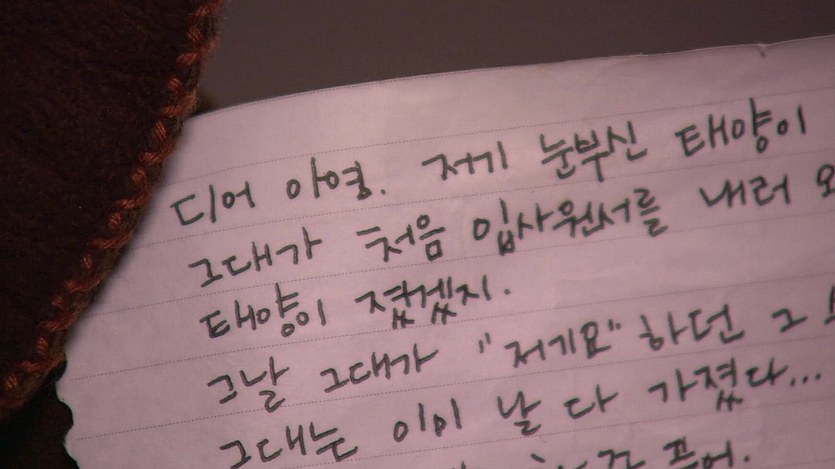 디어 아영. 저기 눈부신 태양이
그대가 처음 입사원서를 내러
태양이 졌겠지.
그날 그대가 "저기요" 하던 그
그대는 이미 날 다 가졌다...